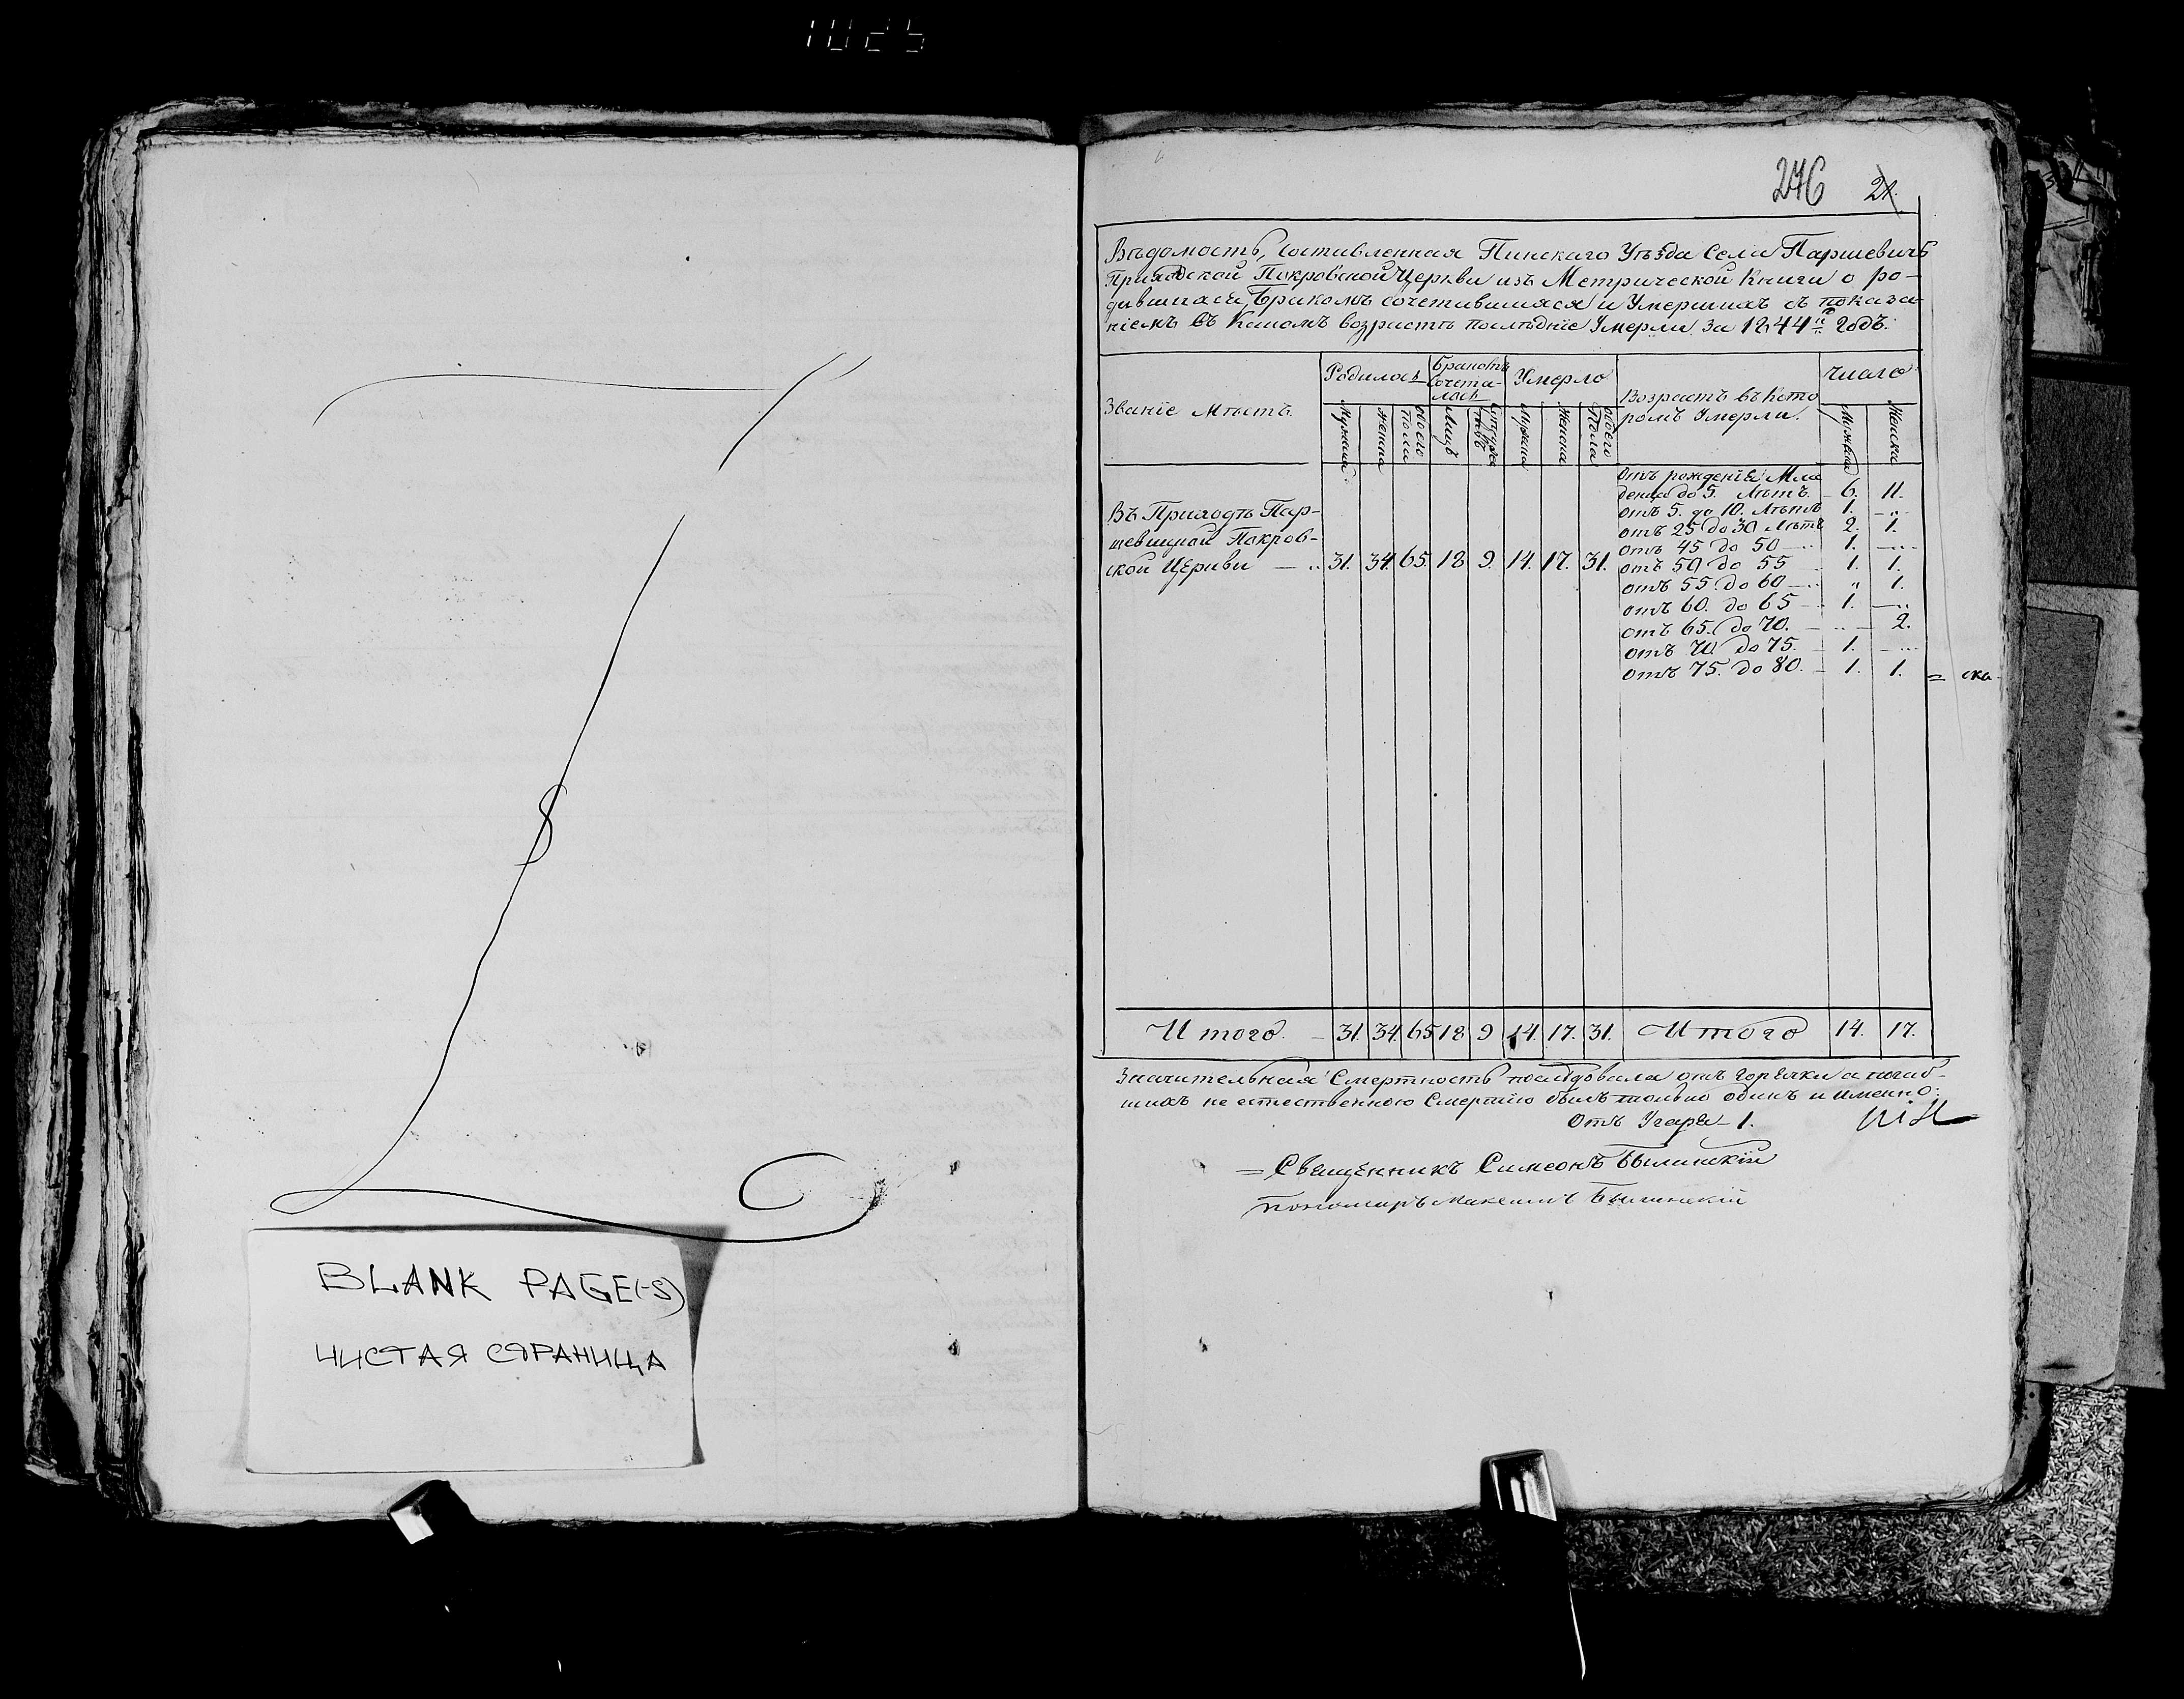 1025
BLANK PAGE(-S)
ЧИСТАЯ СТРАНИЦА
276 21.
Вѣдомость, Составленная Пинскаго Уѣзда Села Паршевичъ
Приходской Покровской Церкви изъ Метрической Книги о ро-
дившихся, Бракомъ сочетавшихся и Умершихъ съ показа-
ніемъ въ Какомъ возрастѣ послѣдніе Умерли. За 1844й Годъ.
Званіе Мѣстъ. Родилось Бракомъ Сочета-лось Умерло Возрастъ въ Кото ромъ Умерли. Число
Мужска Женска обоего Пола Лицъ Супружествъ Мужска Женска обоего Пола Мужска Женска
Въ Приходѣ Пар-
шевицкой Покров-
ской Церкви — 31. 34. 65. 18 9. 14. 17. 31.
Отъ рожденія Мла
денца до 5. Лѣтъ. 6. 11.
отъ 5. до 10. Лѣтъ 1. —
отъ 25 до 30 Лѣтъ 2. 1.
отъ 45 до 50 — 1. —
отъ 50 до 55 — 1. 1.
отъ 55. до 60 — „ 1.
отъ 60. до 65 — 1. —
отъ 65. до 70. — — 2.
отъ 70 до 75. — 1. —
отъ 75. до 80. — 1. 1. = ска
Итого. — 31. 34. 65 18 9 14. 17. 31. Итого 14. 17.
Значительная Смертность послѣдовала отъ горячки а погиб-
шихъ не естественною Смертію былъ только одинъ и именно:
Отъ Угара — 1.
= Священникъ Симеонъ Былинскій
Пономарь Максимъ Былинскій